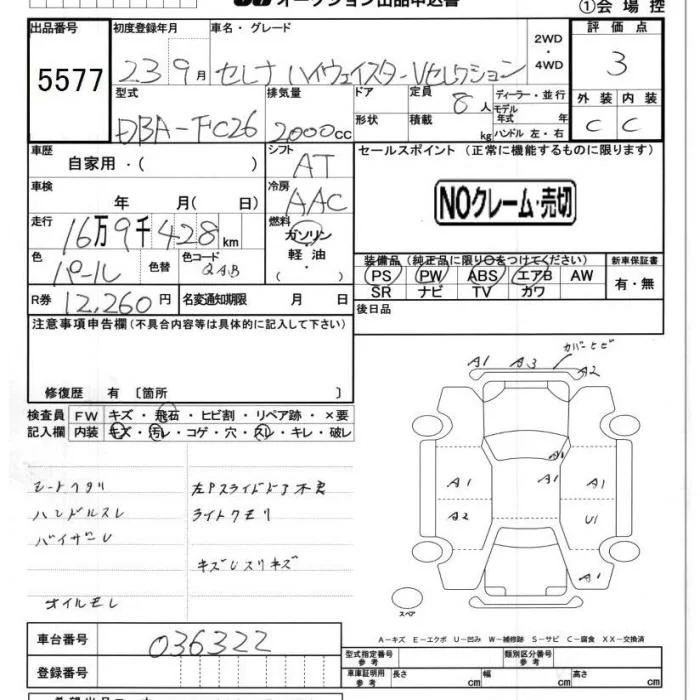 オークション出品申込書
①会場控
出品番号 初度登録年月 車名・グレード 評価点
5577 23 9月 セレナ ハイウェイスターVセレクション 2WD・4WD 3
型式 排気量 ドア 定員 8人 ディーラー・並行 外装 内装
DBA-FC26 2000cc 形状 積載 kg モデル年式 年 ハンドル 左・右 C C
車歴 自家用・( ) シフト AT セールスポイント (正常に機能するものに限ります)
車検 年 月( 日) 冷房 AAC
NOクレーム・売切
走行 16万9千428km 燃料 ガソリン・軽油・( )
色 パール 色替 色コード QAB
装備品(純正品に限り○をつけてください) 新車保証書
PS PW ABS エアB AW 有・無
SR ナビ TV カワ
R券 12,260円 名変通知期限 月 日
後日品
注意事項申告欄(不具合内容等は具体的に記入して下さい)
修復歴 有 〔箇所 〕
検査員 FW キズ・飛石・ヒビ割・リペア跡・×要
記入欄 内装 キズ・汚レ・コゲ・穴・スレ・キレ・破レ
シートヘタリ 左Pスライドドア不良
ハンドルスレ ライトクモリ
バイザーU
キズUスリキズ
オイルモレ
A1 A3 カバーヒビ
A2
A1
A1 A1 A1
A2 U1
A1
スペア
A-キズ E-エクボ U-凹み W-補修跡 S-サビ C-腐食 XX-交換済
車台番号 036322
型式指定番号 参考 類別区分番号 参考
登録番号
車庫証明用 参考 長さ cm 幅 cm 高さ cm